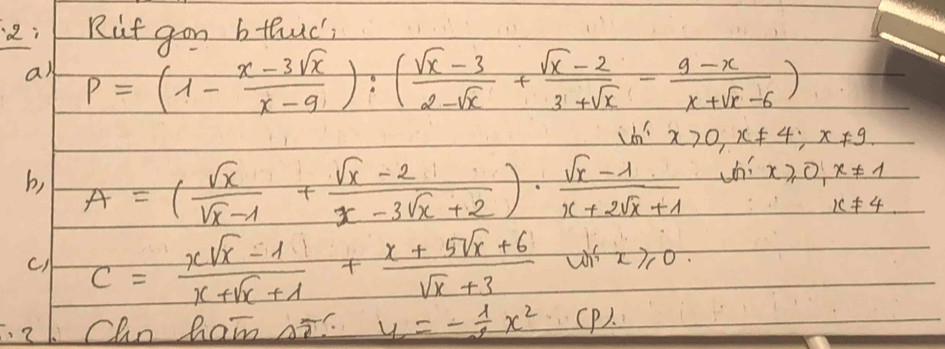 :2: Rút gọn b thức:
a) P = (1 - (x - 3√x)/(x - 9)) : ((√x - 3)/(2 - √x) + (√x - 2)/(3 + √x) - (9 - x)/(x + √x - 6))
với x > 0, x ≠ 4; x ≠ 9.
b, A = (√x/(√x - 1) + (√x - 2)/(x - 3√x + 2)) · (√x - 1)/(x + 2√x + 1) với x ⩾ 0, x ≠ 1
x ≠ 4
c, C = (x√x - 1)/(x + √x + 1) + (x + 5√x + 6)/(√x + 3) với x ⩾ 0.
Cho hàm số: y = - x² (P).